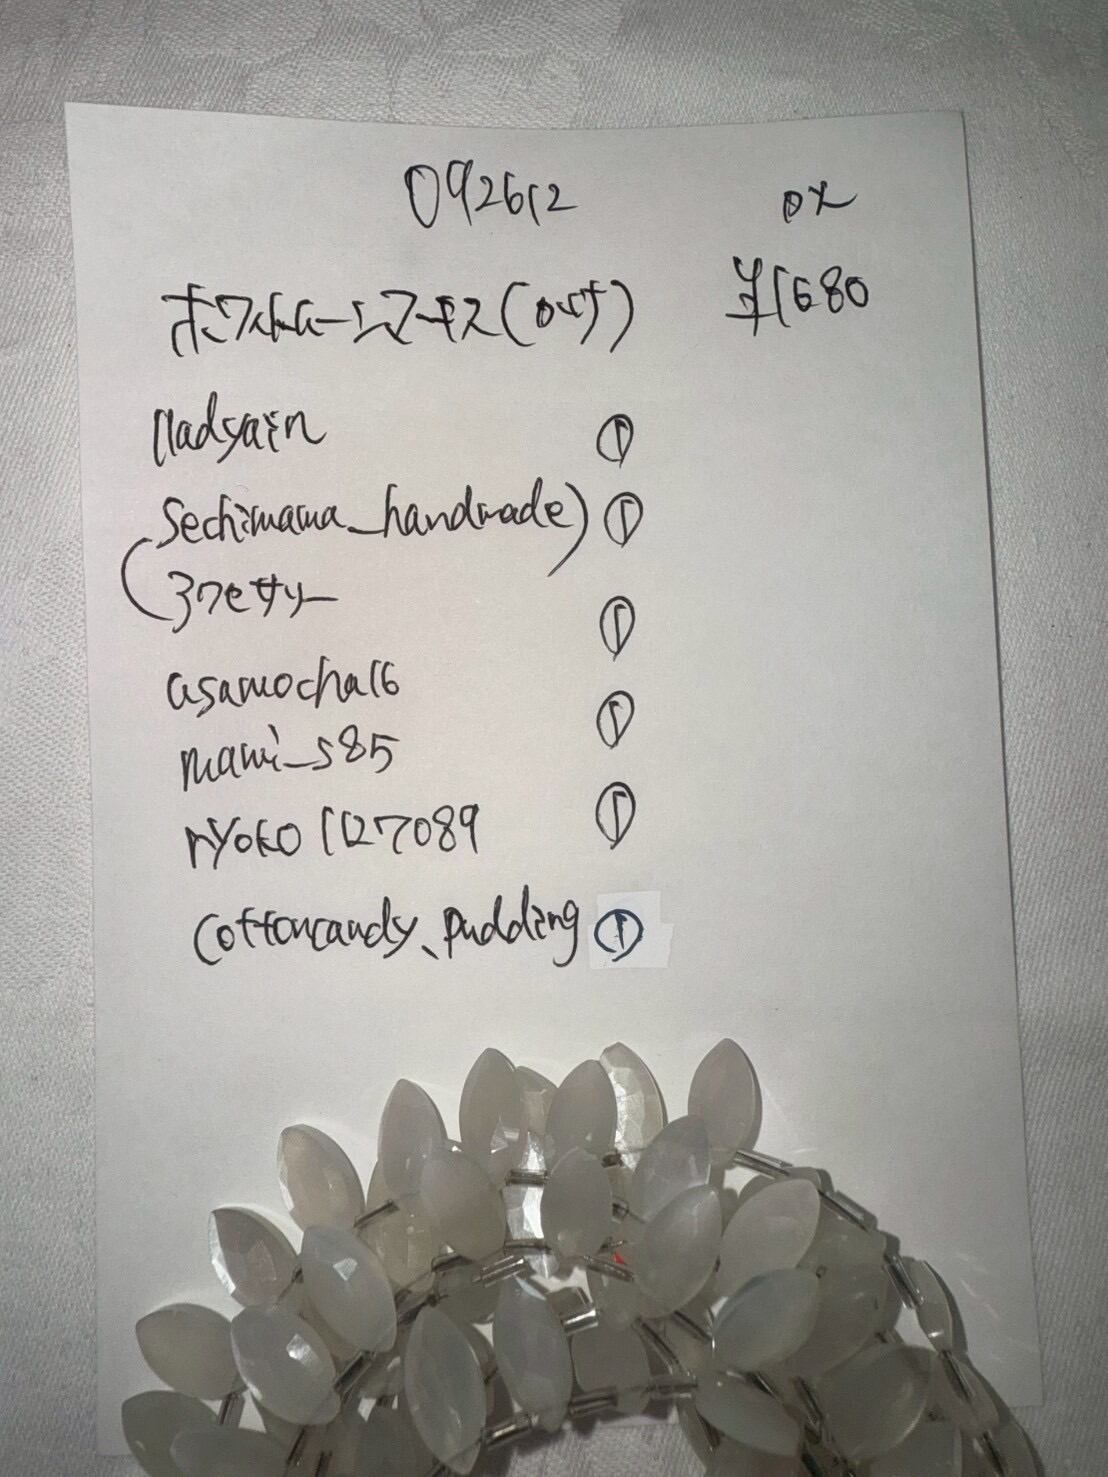 092612
ホワイトムーンマーキス(
¥1680
madyain ①
(sechimama_handmade) ①
アクセサリー
①
asamocha16
①
mami_s85
①
ryoko1127089
cottoncandy、pudding ①